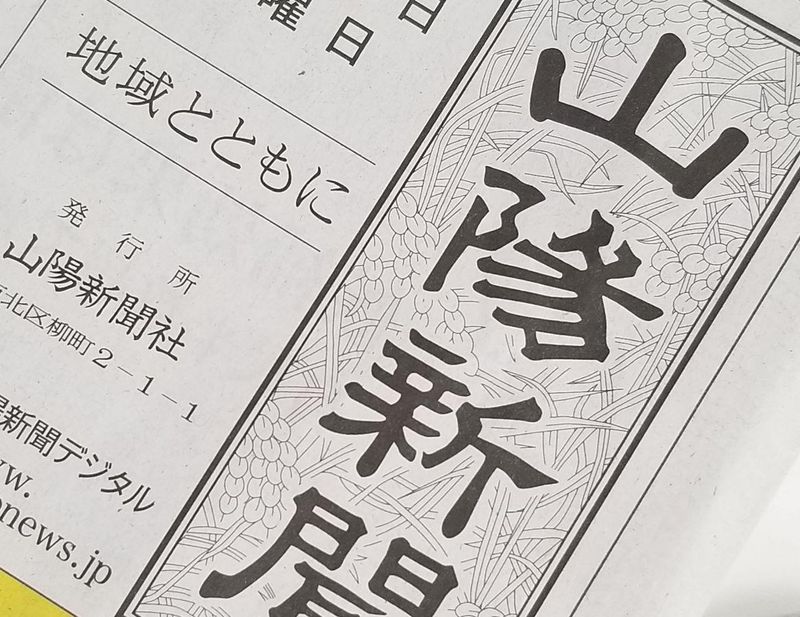 日
曜日
地域とともに
発行所
山陽新聞社
北区柳町2-1-1
新聞デジタル
news.jp
山陽新聞